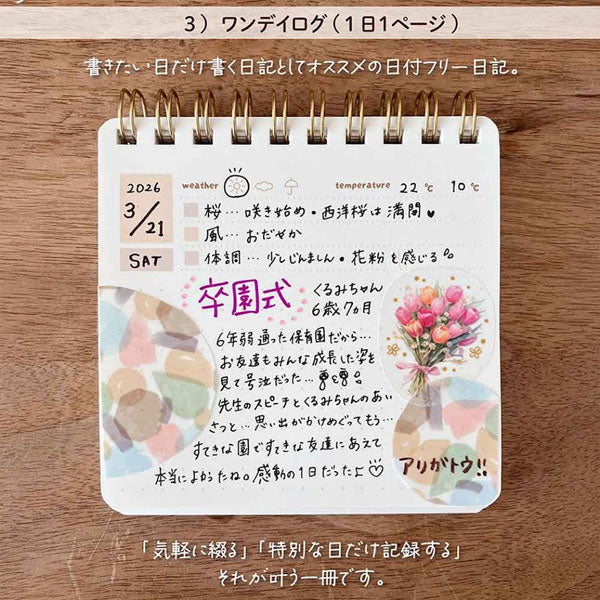 3）ワンデイログ(1日1ページ)
書きたい日だけ書く日記としてオススメの日付フリー日記。
2026
3/21
SAT
weather temperature 22℃ 10℃
桜…咲き始め・西洋桜は満開♥
風…おだやか
体調…少しじんましん・花粉を感じる
卒園式
くるみちゃん
6歳7カ月
6年弱通った保育園だから…
お友達もみんな成長した姿を
見て号泣だった…
先生のスピーチとくるみちゃんのあい
さつと…思い出がかけめぐってもう…
すてきな園ですてきな友達にあえて
本当によかったね。感動の1日だった♪♡
アリガトウ!!
「気軽に綴る」「特別な日だけ記録する」
それが叶う一冊です。